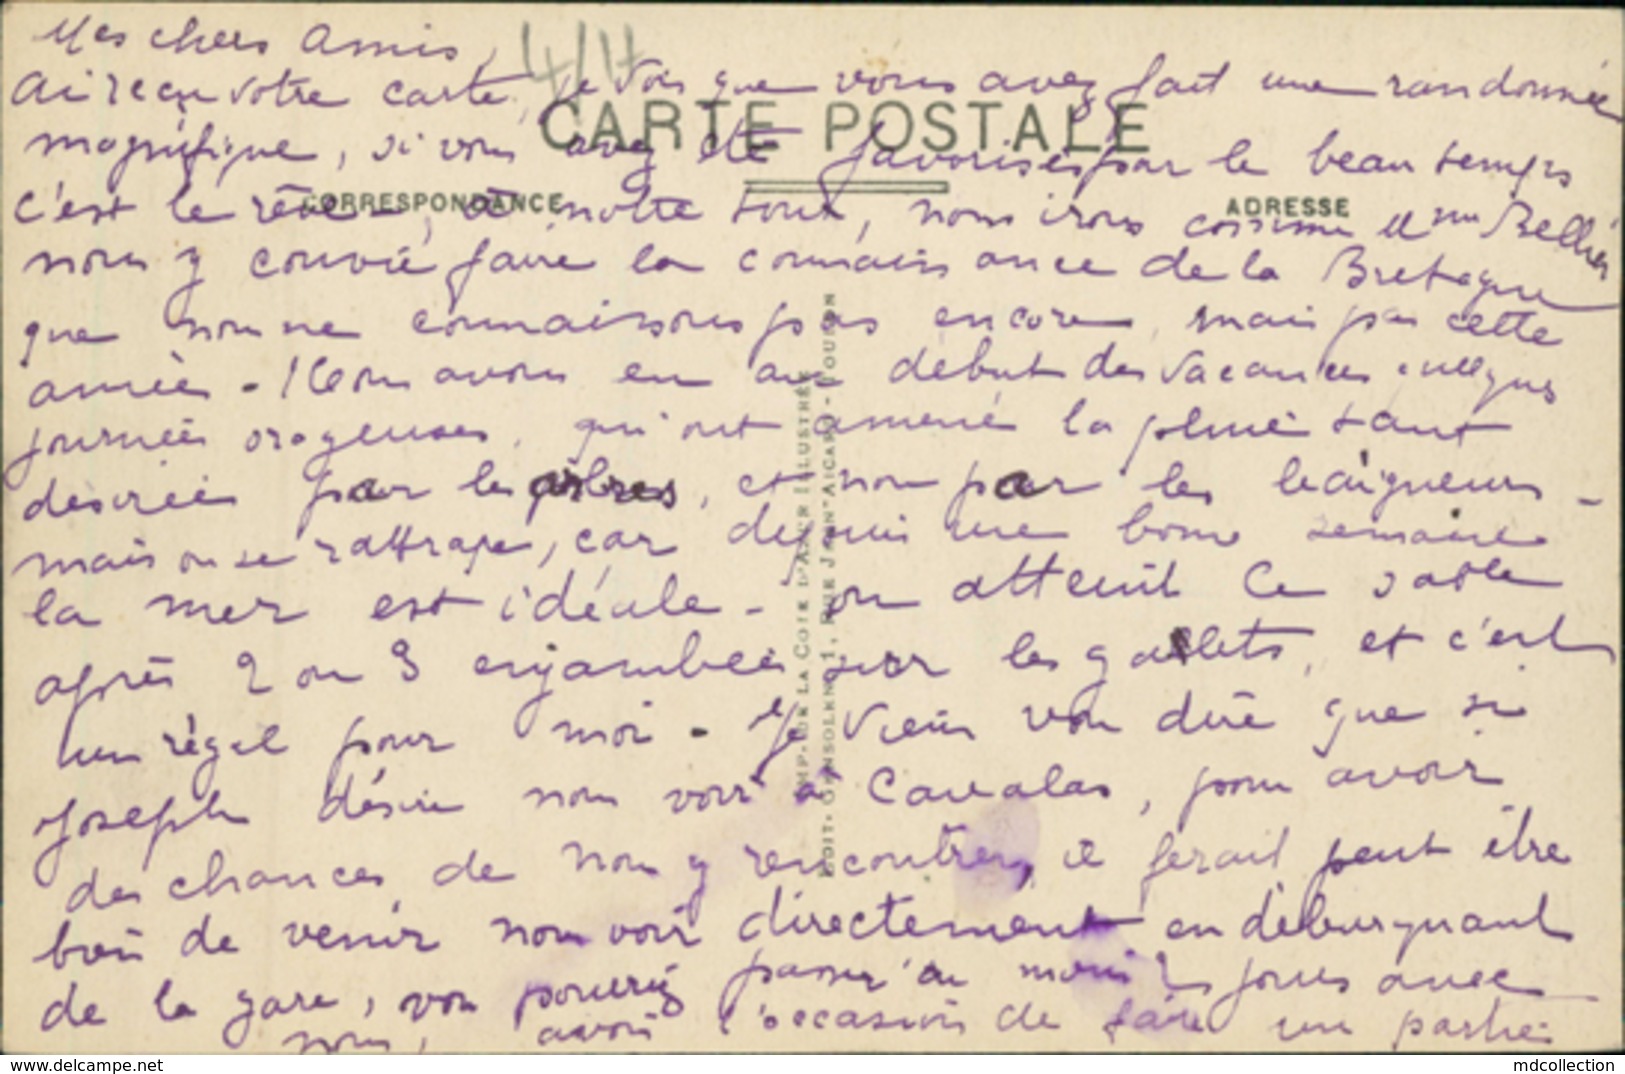 Mes chers Amis,
ai reçu votre carte, je vois que vous avez fait une randonnée
CARTE POSTALE
magnifique, si vous avez été favorisés par le beau temps
CORRESPONDANCE
ADRESSE
c'est le rêve, à notre tour, nous irons comme Mme Bellier
nous y convie faire la connaissance de la Bretagne
que nous ne connaissons pas encore, mais pas cette
année - Nous avons eu au début des vacances quelques
journées orageuses, qui ont amené la pluie tant
désirée par les arbres, et non par les baigneurs -
mais on se rattrape, car depuis une bonne semaine
la mer est idéale - on atteint le sable
après 2 ou 3 enjambées sur les galets, et c'est
un régal pour moi - Je viens vous dire que si
Joseph désire nous voir à Cavalas, pour avoir
des chances de nous y rencontrer, il ferait peut être
bon de venir nous voir directement en débarquant
de la gare, vous pourriez passer au moins 2 jours avec
nous, avoir l'occasion de faire une partie
IMP. DE LA COTE D'AZUR ILLUSTRÉE
1, RUE JEAN AICARD - TOULON
www.delcampe.net
mdcollection